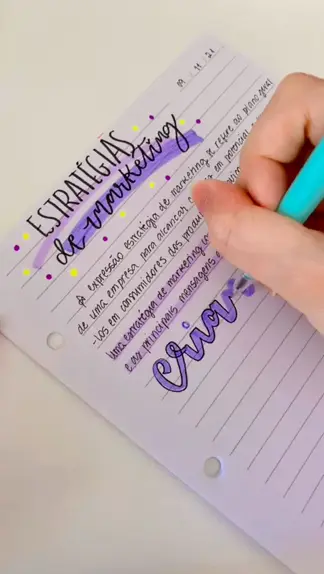 19 . 11 . 21
ESTRATÉGIAS
de marketing
A expressão estratégia de marketing se refere ao plano geral
de uma empresa para alcançar em potencial
-los em consumidores dos
uma estratégia de marketing
e as principais mensagens
cria